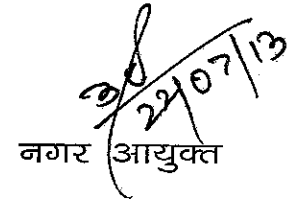 22/07/13
नगर आयुक्त